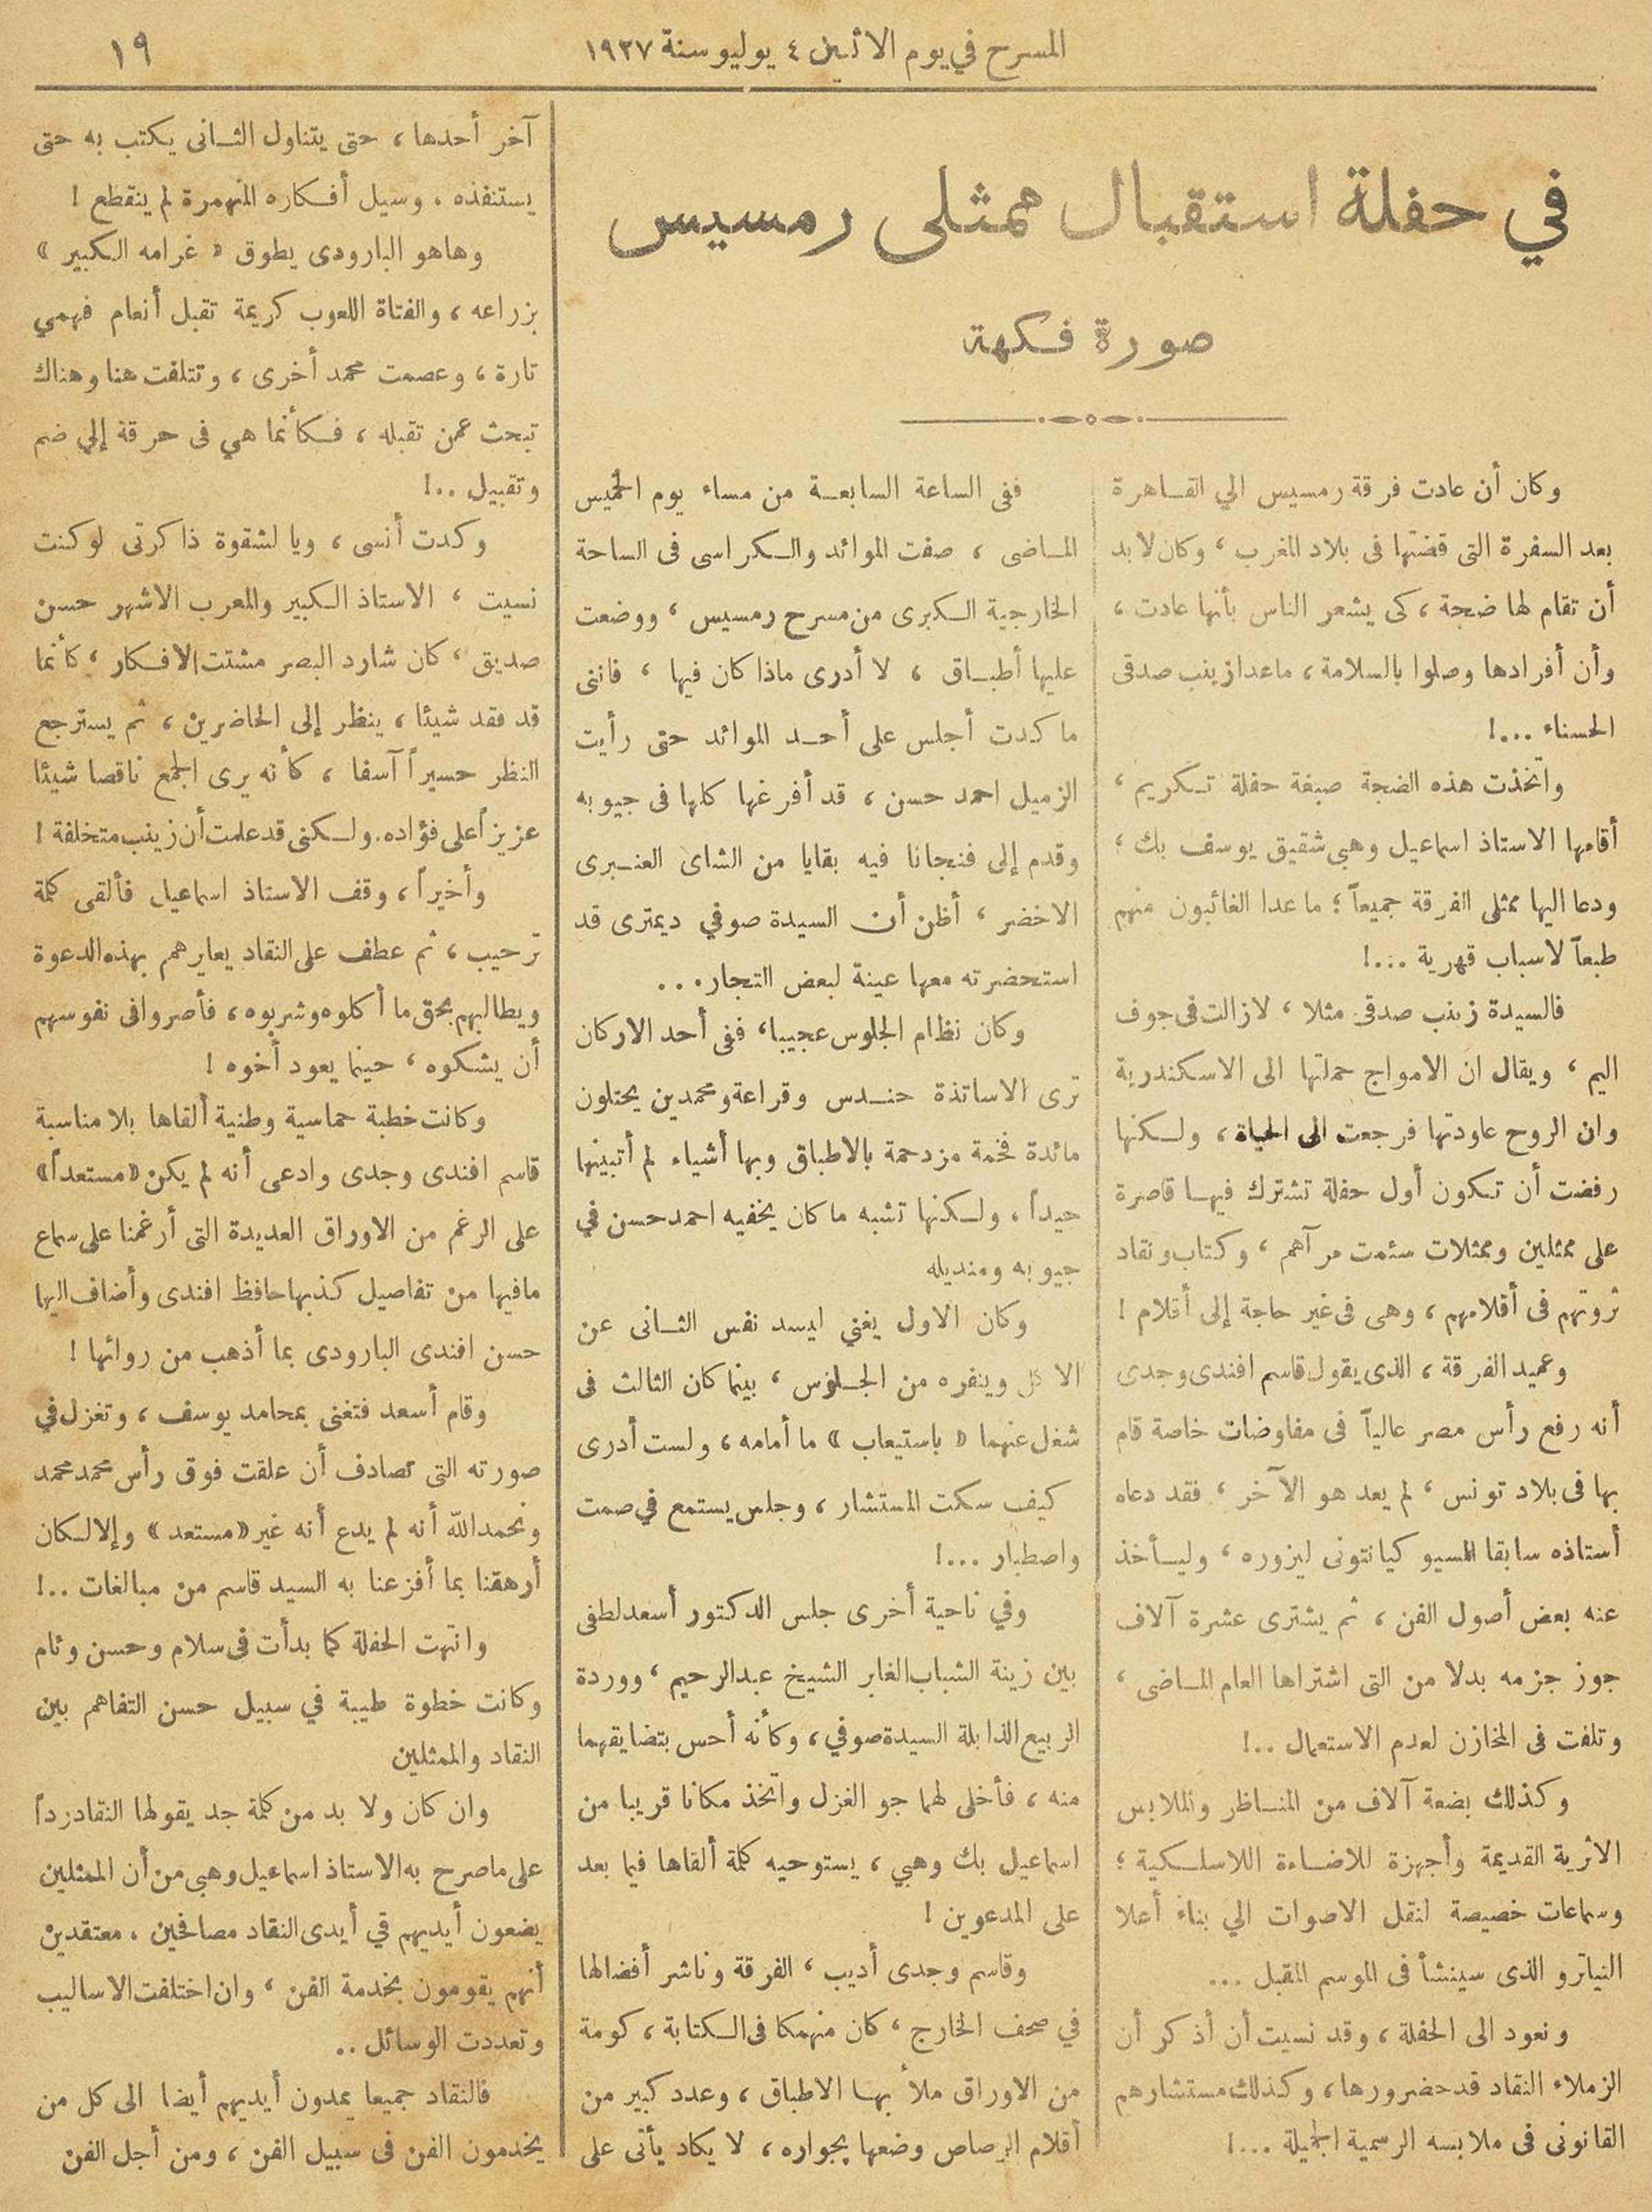 المسرح في يوم الاثنين ٤ يوليو سنة ١٩٢٧
١٩
في حفلة استقبال ممثلى رمسيس
صورة فكهة
وكان أن عادت فرقة رمسيس الي القاهرة
بعد السفرة التى قضتها فى بلاد المغرب ، وكان لا بد
أن تقام لها ضجة ، كى يشعر الناس بأنها عادت ،
وأن أفرادها وصلوا بالسلامة ، ماعدا زينب صدقى
الحسناء ...!
واتخذت هذه الضجة صبغة حفلة تكريم ،
أقامها الاستاذ اسماعيل وهبى شقيق يوسف بك ؛
ودعا اليها ممثلى الفرقة جميعاً ؛ ما عدا الغائبون منهم
طبعاً لاسباب قهرية ...!
فالسيدة زينب صدقى مثلا ، لازالت فى جوف
اليم ، ويقال ان الامواج حملتها الى الاسكندرية
وان الروح عاودتها فرجعت الى الحياة ، ولكنها
رفضت أن تكون أول حفلة تشترك فيها قاصرة
على ممثلين وممثلات سئمت مرآهم ، وكتاب ونقاد
ثروتهم فى أقلامهم ، وهى فى غير حاجة إلى أقلام !
وعميد الفرقة ، الذى يقول قاسم افندى وجدى
أنه رفع رأس مصر عالياً فى مفاوضات خاصة قام
بها فى بلاد تونس ، لم يعد هو الآخر ، فقد دعاه
أستاذه سابقا المسيو كيانتونى ليزوره ، وليأخذ
عنه بعض أصول الفن ، ثم يشترى عشرة آلاف
جوز جزمه بدلا من التى اشتراها العام الماضى ،
وتلفت فى المخازن لعدم الاستعمال ..!
وكذلك بضعة آلاف من المناظر والملابس
الاثرية القديمة وأجهزة للاضاءة اللاسلكية ؛
وسماعات خصيصة لنقل الاصوات الي بناء أعلا
التياترو الذى سينشأ فى الموسم المقبل ...
ونعود الى الحفلة ، وقد نسيت أن أذكر أن
الزملاء النقاد قد حضرورها ، وكذلك مستشارهم
القانونى فى ملابسه الرسمية الجميلة ...!
ففى الساعة السابعة من مساء يوم الخميس
الماضى ، صفت الموائد والكراسى فى الساحة
الخارجية الكبرى من مسرح رمسيس ، ووضعت
عليها أطباق ، لا أدرى ماذا كان فيها ، فاننى
ما كدت أجلس على أحد الموائد حتى رأيت
الزميل احمد حسن ، قد أفرغها كلها فى جيوبه
وقدم إلى فنجانا فيه بقايا من الشاى العنبرى
الاخضر ، أظن أن السيدة صوفي ديمترى قد
استحضرته معها عينة لبعض التجار ...
وكان نظام الجلوس عجيبا ، ففى أحد الاركان
ترى الاساتذة حندس وقراعة ومحمدين يحتلون
مائدة فخمة مزدحمة بالاطباق وبها أشياء لم أتبينها
جيداً ، ولكنها تشبه ما كان يخفيه احمد حسن في
جيوبه ومنديله
وكان الاول يغني ليسد نفس الثانى عن
الاكل وينفره من الجلوس ، بينما كان الثالث فى
شغل عنهما « باستيعاب » ما أمامه ، ولست أدرى
كيف سكت المستشار ، وجلس يستمع في صمت
واصطبار ...!
وفي ناحية أخرى جلس الدكتور أسعد لطفى
بين زينة الشباب الغابر الشيخ عبد الرحيم ، ووردة
الربيع الذابلة السيدة صوفي ، وكأنه أحس بتضايقهما
منه ، فأخلى لهما جو الغزل واتخذ مكانا قريبا من
اسماعيل بك وهبي ، يستوحيه كلمة ألقاها فيما بعد
على المدعوين !
وقاسم وجدى أديب ، الفرقة وناشر أفضالها
في صحف الخارج ، كان منهمكا فى الكتابة ، كومة
من الاوراق ملأ بها الاطباق ، وعدد كبير من
أقلام الرصاص وضعها بجواره ، لا يكاد يأتى على
آخر أحدها ، حتى يتناول الثانى يكتب به حتى
يستنفذه ، وسيل أفكاره المنهمرة لم ينقطع !
وهاهو البارودى يطوق « غرامه الكبير »
بزراعه ، والفتاة اللعوب كريمة تقبل أنعام فهمي
تارة ، وعصمت محمد أخرى ، وتتلفت هنا وهناك
تبحث عمن تقبله ، فكأنما هي فى حرقة إلي ضم
وتقبيل ..!
وكدت أنسى ، ويا لشقوة ذاكرتى لو كنت
نسيت ، الاستاذ الكبير والمعرب الاشهر حسن
صديق ، كان شارد البصر مشتت الافكار ، كأنما
قد فقد شيئا ، ينظر إلى الحاضرين ، ثم يسترجع
النظر حسيراً آسفا ، كأنه يرى الجمع ناقصا شيئا
عزيزاً على فؤاده. ولكنى قد علمت أن زينب متخلفة !
وأخيراً ، وقف الاستاذ اسماعيل فألقى كلمة
ترحيب ، ثم عطف على النقاد يعايرهم بهذه الدعوة
ويطالبهم بحق ما أكلوه وشربوه ، فأصروا فى نفوسهم
أن يشكوه ، حينما يعود أخوه !
وكانت خطبة حماسية وطنية ألقاها بلا مناسبة
قاسم افندى وجدى وادعى أنه لم يكن «مستعداً»
على الرغم من الاوراق العديدة التى أرغمنا على سماع
مافيها من تفاصيل كذبها حافظ افندى وأضاف اليها
حسن افندى البارودى بما أذهب من روائها !
وقام أسعد فتغنى بمحامد يوسف ، وتغزل في
صورته التى تصادف أن علقت فوق رأس محمد محمد
ونحمد الله أنه لم يدع أنه غير «مستعد» وإلا لكان
أرهقنا بما أفزعنا به السيد قاسم من مبالغات ..!
وانتهت الحفلة كما بدأت فى سلام وحسن وئام
وكانت خطوة طيبة في سبيل حسن التفاهم بين
النقاد والممثلين
وان كان ولا بد من كلمة جد يقولها النقاد رداً
على ماصرح به الاستاذ اسماعيل وهبى من أن الممثلين
يضعون أيديهم قي أيدى النقاد مصافحين ، معتقدين
أنهم يقومون بخدمة الفن ، وان اختلفت الاساليب
وتعددت الوسائل ..
فالنقاد جميعا يمدون أيديهم أيضا الى كل من
يخدمون الفن فى سبيل الفن ، ومن أجل الفن